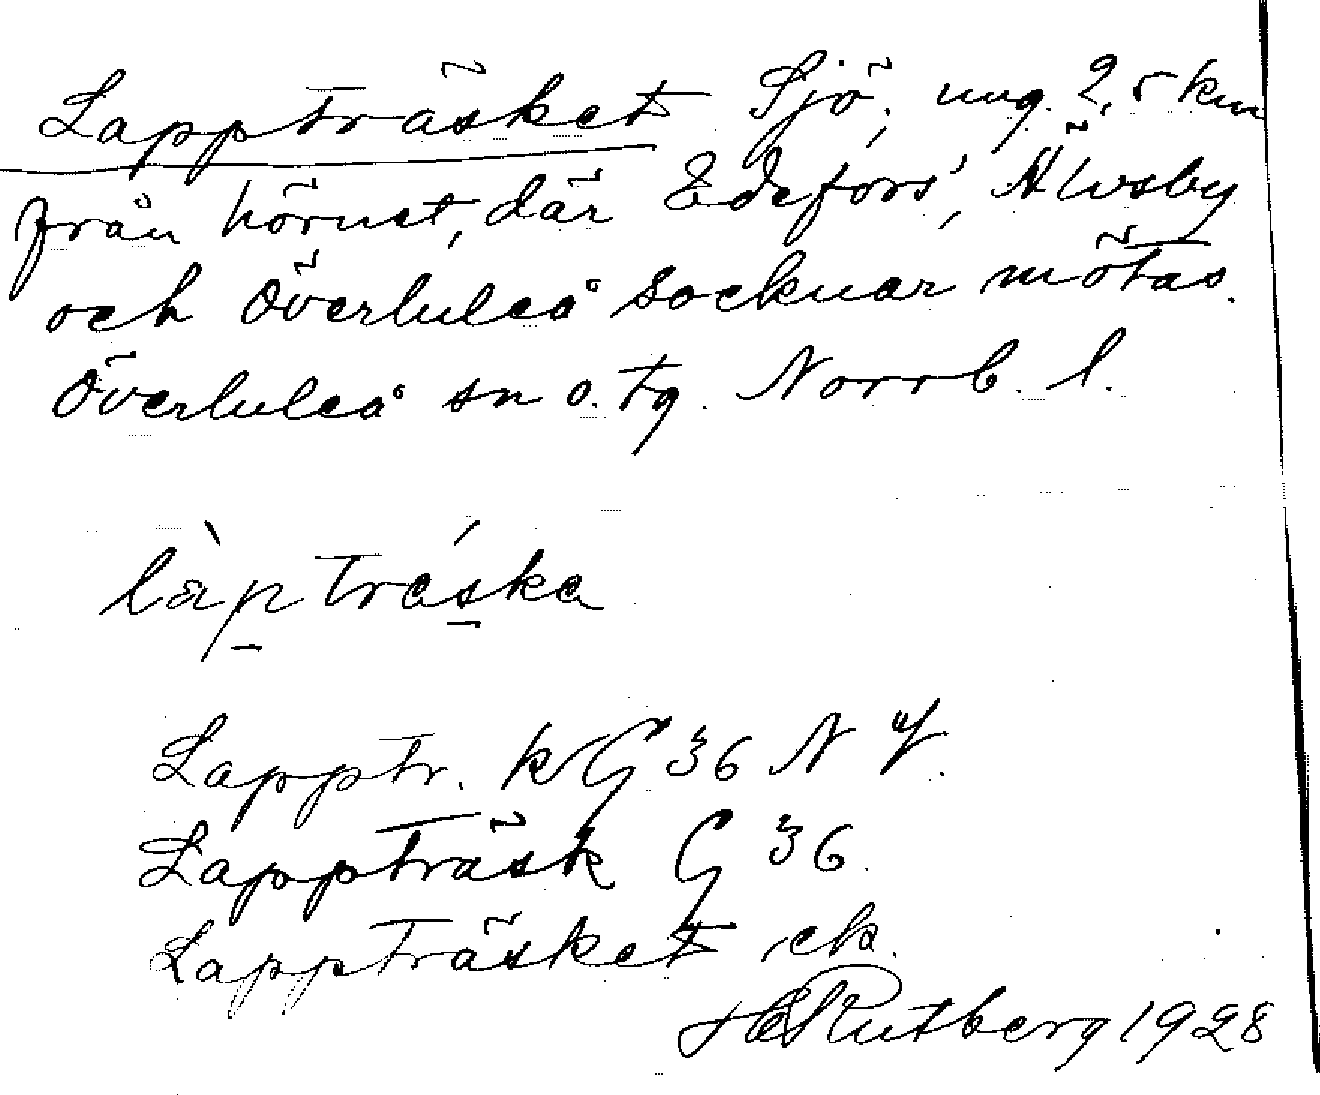 Lappträsket Sjö, ung. 2,5 km
från hörnet, där Edefors, Älvsby
och Överluleå socknar mötas.
Överluleå sn o. tg. Norrb. l.
làptráska
Lapptr. k G 36 N
Lappträsk G 36.
Lappträsket ek.
HERutberg 1928